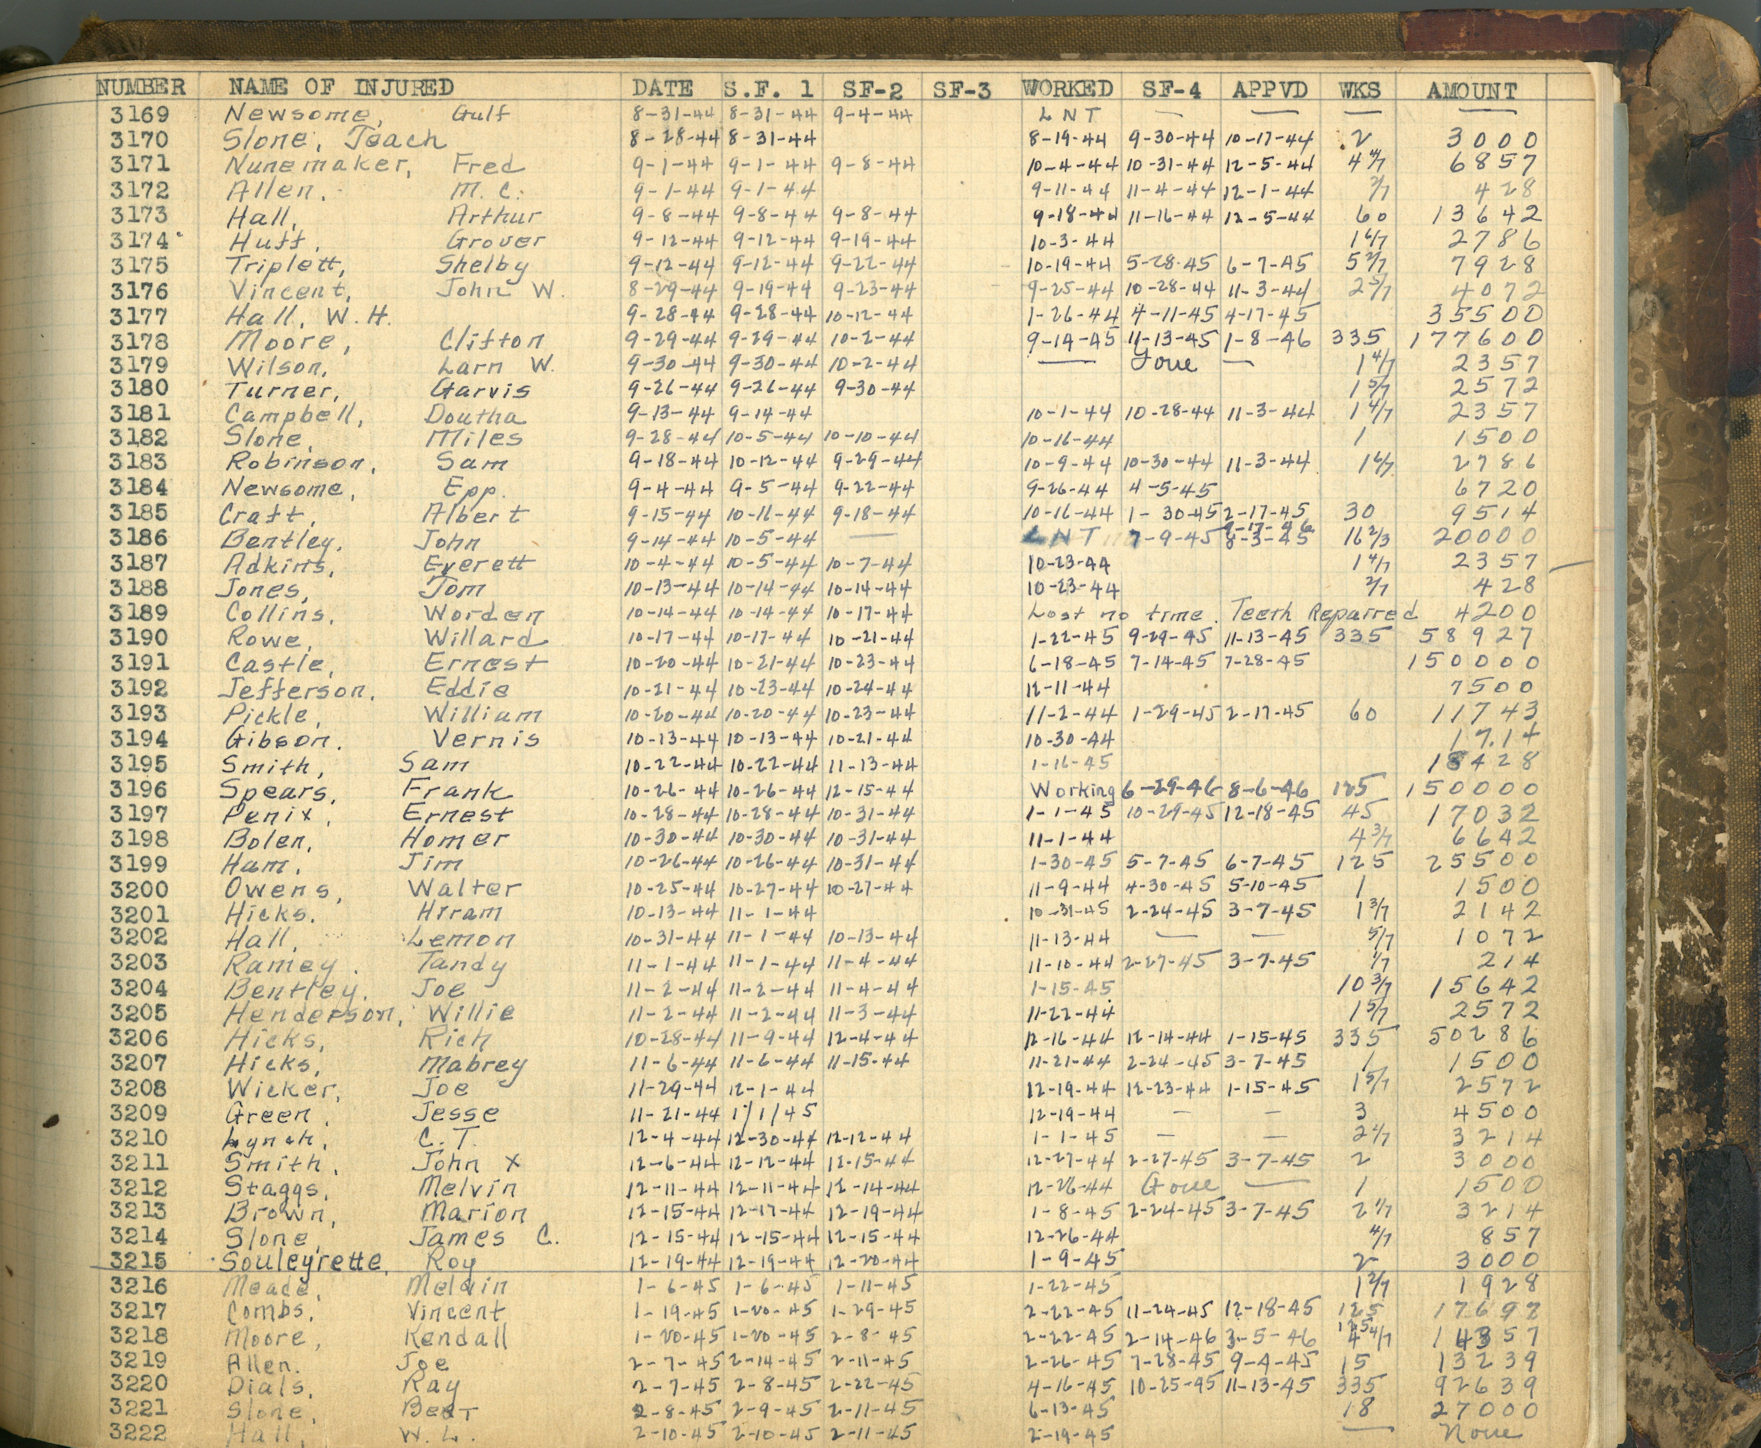 NUMBER NAME OF INJURED DATE S.F. 1 SF-2 SF-3 WORKED SF-4 APPVD WKS AMOUNT
3169 Newsome, Gulf 8-31-44 8-31-44 9-4-44 LNT — — — —
3170 Slone, Teach 8-28-44 8-31-44 8-19-44 9-30-44 10-17-44 2 3000
3171 Nunemaker, Fred 9-1-44 9-1-44 9-8-44 10-4-44 10-31-44 12-5-44 4 4/7 6857
3172 Allen, M.C. 9-1-44 9-1-44 9-11-44 11-4-44 12-1-44 2/7 428
3173 Hall, Arthur 9-8-44 9-8-44 9-8-44 9-18-44 11-16-44 12-5-44 60 13642
3174 Huff, Grover 9-12-44 9-12-44 9-19-44 10-3-44 1 6/7 2786
3175 Triplett, Shelby 9-12-44 9-12-44 9-22-44 10-19-44 5-28-45 6-7-45 5 2/7 7928
3176 Vincent, John W. 8-29-44 9-19-44 9-23-44 9-25-44 10-28-44 11-3-44 2 5/7 4072
3177 Hall, W.H. 9-28-44 9-28-44 10-12-44 1-26-44 4-11-45 4-17-45 35500
3178 Moore, Clifton 9-29-44 9-29-44 10-2-44 9-14-45 11-13-45 1-8-46 335 177600
3179 Wilson, Larn W. 9-30-44 9-30-44 10-2-44 — Gone — 1 4/7 2357
3180 Turner, Garvis 9-26-44 9-26-44 9-30-44 1 5/7 2572
3181 Campbell, Doutha 9-13-44 9-14-44 10-1-44 10-28-44 11-3-44 1 4/7 2357
3182 Slone, Miles 9-28-44 10-5-44 10-10-44 10-16-44 1 1500
3183 Robinson, Sam 9-18-44 10-12-44 9-29-44 10-9-44 10-30-44 11-3-44 1 6/7 2786
3184 Newsome, Epp. 9-4-44 9-5-44 9-22-44 9-26-44 4-5-45 6720
3185 Craft, Albert 9-15-44 10-16-44 9-18-44 10-16-44 1-30-45 2-17-45 30 9514
3186 Bentley, John 9-14-44 10-5-44 — LNT 7-9-45 8-3-45 16 2/3 20000
3187 Adkins, Everett 10-4-44 10-5-44 10-7-44 10-23-44 1 4/7 2357
3188 Jones, Tom 10-13-44 10-14-44 10-14-44 10-23-44 2/7 428
3189 Collins, Worden 10-14-44 10-14-44 10-17-44 Lost no time. Teeth Reparred 4200
3190 Rowe, Willard 10-17-44 10-17-44 10-21-44 1-22-45 9-29-45 11-13-45 335 58927
3191 Castle, Ernest 10-20-44 10-21-44 10-23-44 6-18-45 7-14-45 7-28-45 150000
3192 Jefferson, Eddie 10-21-44 10-23-44 10-24-44 12-11-44 7500
3193 Pickle, William 10-20-44 10-20-44 10-23-44 11-2-44 1-29-45 2-17-45 60 11743
3194 Gibson, Vernis 10-13-44 10-13-44 10-21-44 10-30-44 1714
3195 Smith, Sam 10-22-44 10-22-44 11-13-44 1-16-45 18428
3196 Spears, Frank 10-26-44 10-26-44 12-15-44 Working 6-29-46 8-6-46 125 150000
3197 Penix, Ernest 10-28-44 10-28-44 10-31-44 1-1-45 10-29-45 12-18-45 45 17032
3198 Bolen, Homer 10-30-44 10-30-44 10-31-44 11-1-44 4 3/7 6642
3199 Ham, Jim 10-26-44 10-26-44 10-31-44 1-30-45 5-7-45 6-7-45 125 25500
3200 Owens, Walter 10-25-44 10-27-44 10-27-44 11-9-44 4-30-45 5-10-45 1 1500
3201 Hicks, Hiram 10-13-44 11-1-44 10-31-45 2-24-45 3-7-45 1 3/7 2142
3202 Hall, Lemon 10-31-44 11-1-44 10-13-44 11-13-44 — — 5/7 1072
3203 Ramey, Tandy 11-1-44 11-1-44 11-4-44 11-10-44 2-27-45 3-7-45 1/7 214
3204 Bentley, Joe 11-2-44 11-2-44 11-4-44 1-15-45 10 3/7 15642
3205 Henderson, Willie 11-2-44 11-2-44 11-3-44 11-22-44 1 5/7 2572
3206 Hicks, Rich 10-28-44 11-9-44 12-4-44 12-16-44 12-14-44 1-15-45 335 50286
3207 Hicks, Mabrey 11-6-44 11-6-44 11-15-44 11-21-44 2-24-45 3-7-45 1 1500
3208 Wicker, Joe 11-29-44 12-1-44 12-19-44 12-23-44 1-15-45 1 5/7 2572
3209 Green, Jesse 11-21-44 1/1/45 12-19-44 — — 3 4500
3210 Lynch, C.T. 12-4-44 12-30-44 12-12-44 1-1-45 — — 2 1/7 3214
3211 Smith, John X 12-6-44 12-12-44 12-15-44 12-27-44 2-27-45 3-7-45 2 3000
3212 Staggs, Melvin 12-11-44 12-11-44 12-14-44 12-26-44 Gone — 1 1500
3213 Brown, Marion 12-15-44 12-17-44 12-19-44 1-8-45 2-24-45 3-7-45 2 1/7 3214
3214 Slone, James C. 12-15-44 12-15-44 12-15-44 12-26-44 4/7 857
3215 Souleyrette, Roy 12-19-44 12-19-44 12-20-44 1-9-45 2 3000
3216 Meade, Melvin 1-6-45 1-6-45 1-11-45 1-22-45 1 2/7 1928
3217 Combs, Vincent 1-19-45 1-20-45 1-29-45 2-22-45 11-24-45 12-18-45 125 17697
3218 Moore, Kendall 1-20-45 1-20-45 2-8-45 2-22-45 2-14-46 3-5-46 125 4 4/7 14357
3219 Allen, Joe 2-7-45 2-14-45 2-11-45 2-26-45 7-28-45 9-4-45 15 13239
3220 Dials, Ray 2-7-45 2-8-45 2-22-45 4-16-45 10-25-45 11-13-45 335 92639
3221 Slone, Bert 2-8-45 2-9-45 2-11-45 6-13-45 18 27000
3222 Hall, W.L. 2-10-45 2-10-45 2-11-45 2-19-45 — None